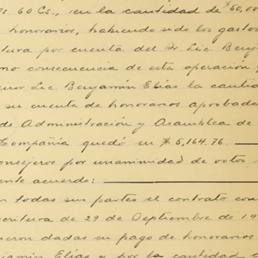 s. 60 Cs., en la cantidad de $60,00
honorarios, habiendo sido los gastos
tura por cuenta del Sr Lic Benj
mo consecuencia de esta operación
nor Lic Benjamín Elías la cantida
su cuenta de honorarios aprobada
de Administración y Asamblea de
Compañía quedó en $ 5,164.76.
onsejeros por unanimidad de votos
ente acuerdo:
n todas sus partes el contrato con
critura de 29 de Septiembre de 19
eron dadas su pago de honorarios
amín Elías y por la cantidad